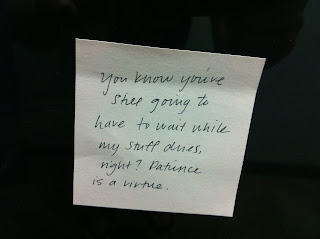 You know you've
still going to
have to wait while
my stuff dries,
right? Patience
is a virtue.